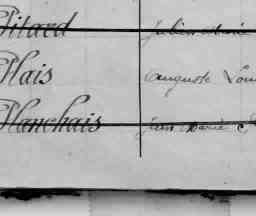 Pitard Julien Marie
Plais Auguste Loui
Planchais Jean Marie